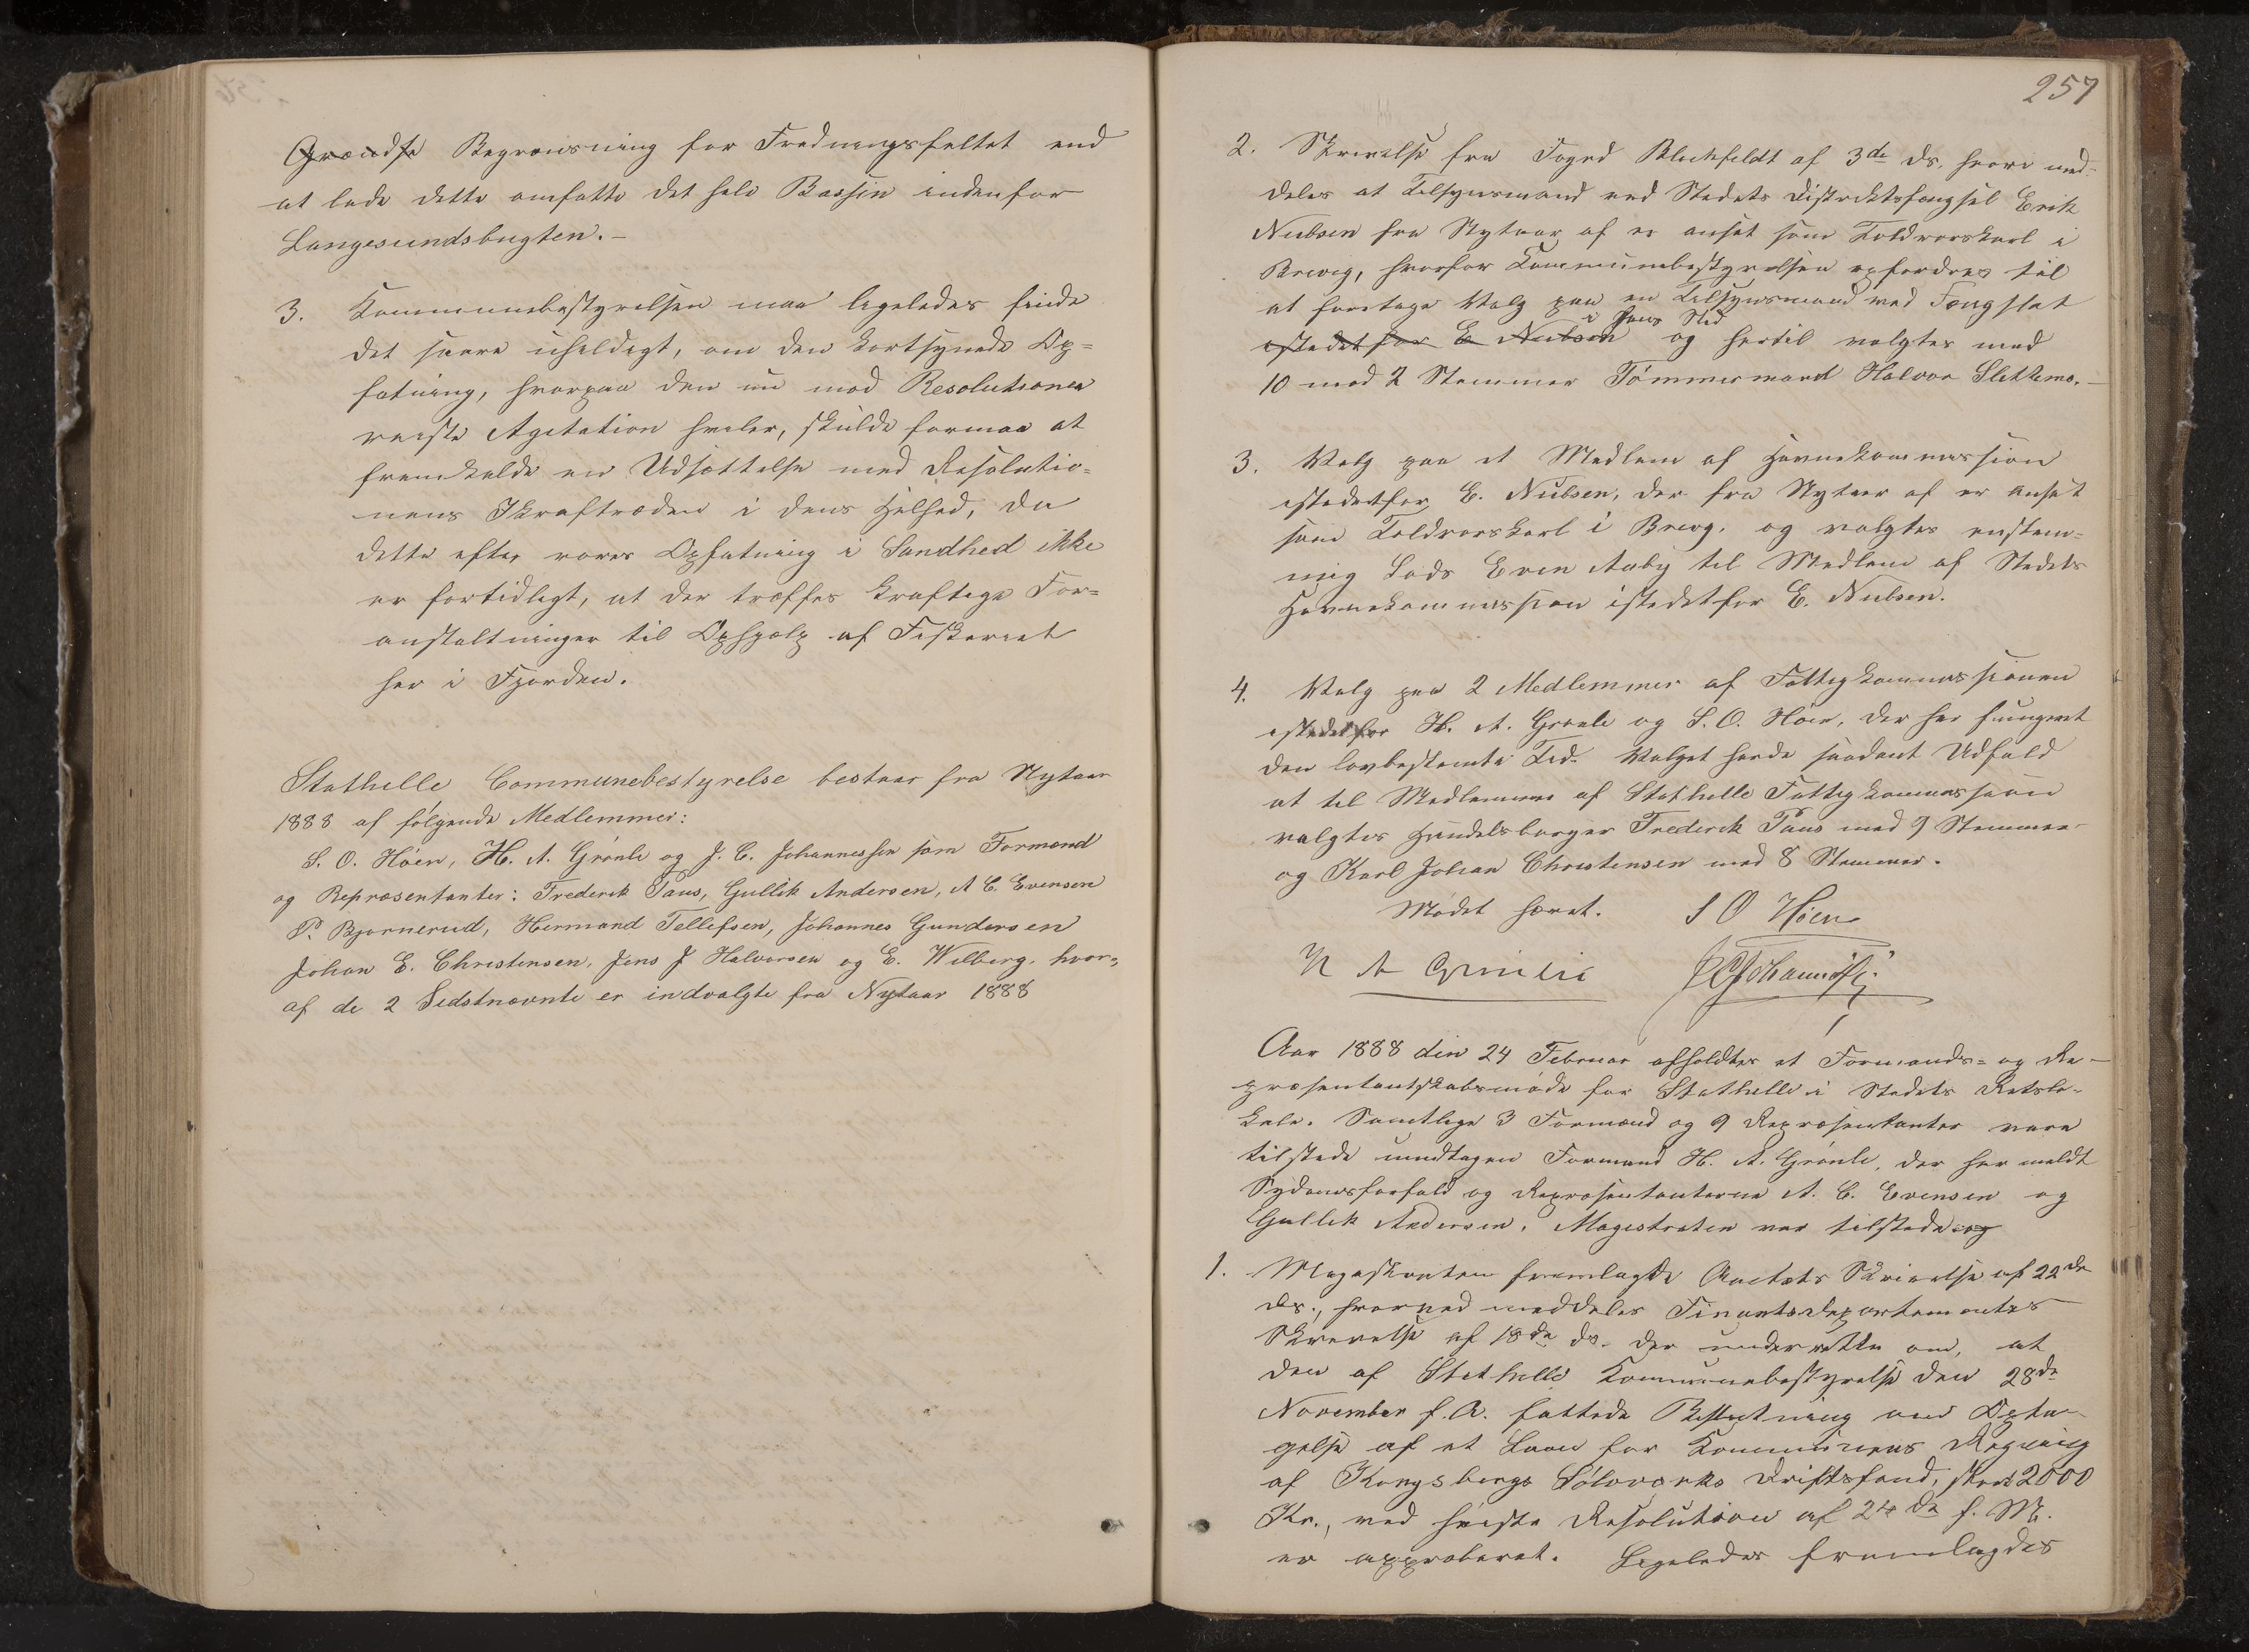 Begrænsning for Fredningsfeltet end
at lade dette omfatte det hele Bassin indenfor
Langesundsbugten. –
3. Kommunebestyrelsen maa ligeledes finde
det saare uheldigt, om den kortsynede Op=
fatning, hvorpaa den nu mod Resolutionen
reiste Agitation hviler, skulde formaa at
fremkalde en Udsættelse med Resolutio=
nens Ikrafttræden i dens Helhed, da
dette efter vores Opfatning i Sandhed ikke
er fortidligt, at der træffes kraftige For=
anstaltninger til Ophjælp af Fiskeriet
her i Fjorden.
Stathelle Communebestyrelse bestaar fra Nytaar
1888 af følgende Medlemmer:
S. O. Höen, H. A. Grönli og J. C. Johannessen som Formænd
og Repræsentanter: Frederik Paus, Gullik Andersen, A C. Evensen
P. Bjørnerud, Hermand Tellefsen, Johannes Gundersen
Johan E. Christensen, Jens J Halvorsen og E. Wilberg, hvor=
af de 2 Sidstnævnte er indvalgte fra Nytaar 1888
257
2. Skrivelse fra Foged Blichfeldt af 3de ds. hvori med=
deles at Tilsynsmand ved Stedets Distriktsfængsel Erik
Nielsen fra Nytaar af er ansat som Toldrorskarl i
Brevig, hvorfor Kommunebestyrelsen opfordres til
at foretage Valg paa en Tilsynsmand ved Fængslet
i hans Sted
istedetfor E Nielsen og hertil valgtes med
10 mod 2 Stemmer Tömmermand Halvor Slettemo. –
3. Valg paa et Medlem af Havnekommission
istedetfor E. Nielsen, der fra Nytaar af er ansat
som Toldrorskarl i Brevig. og valgtes enstem=
mig Lods Even Aaby til Medlem af Stedets
Havnekommission istedetfor E. Nielsen.
4. Valg paa 2 Medlemmer af Fattigkommissionen
istedetfor H. A. Grönli og S. O. Höen, der har fungeret
den lovbestemte Tid. Valget havde saadant Udfald
at til Medlemmer af Stathelle Fattigkommission
valgtes Handelsborger Frederik Paus med 9 Stemmer
og Karl Johan Christensen med 8 Stemmer.
Mödet hævet. S O Höen
H A Grönlie J C Johannessen
Aar 1888 den 24 Februar afholdtes et Formands= og Re-
præsentantskabsmöde for Stathelle i Stedets Retslo-
kale. Samtlige 3 Formænd og 9 Repræsentanter vare
tilstede undtagen Formand H. A. Grönli, der har meldt
Sygdomsforfald og Repræsentanterne A. C. Evensen og
Gullik Andersen. Magistraten var tilstede og
1. Magistraten fremlagde Amtets Skrivelse af 22de
ds., hvorved meddeles Finantsdepartementets
Skrivelse af 18de ds. der underrette om, at
den af Stathelle Kommunebestyrelse den 28de
November f. A. fattede Beslutning om Opta=
gelse af et Laan for Kommunens Regning
af Kongsbergs Sölvværks Driftsfond, stort 2000
Kr., ved höieste Resolution af 24de f. M.
er approberet. Ligeledes fremlagdes